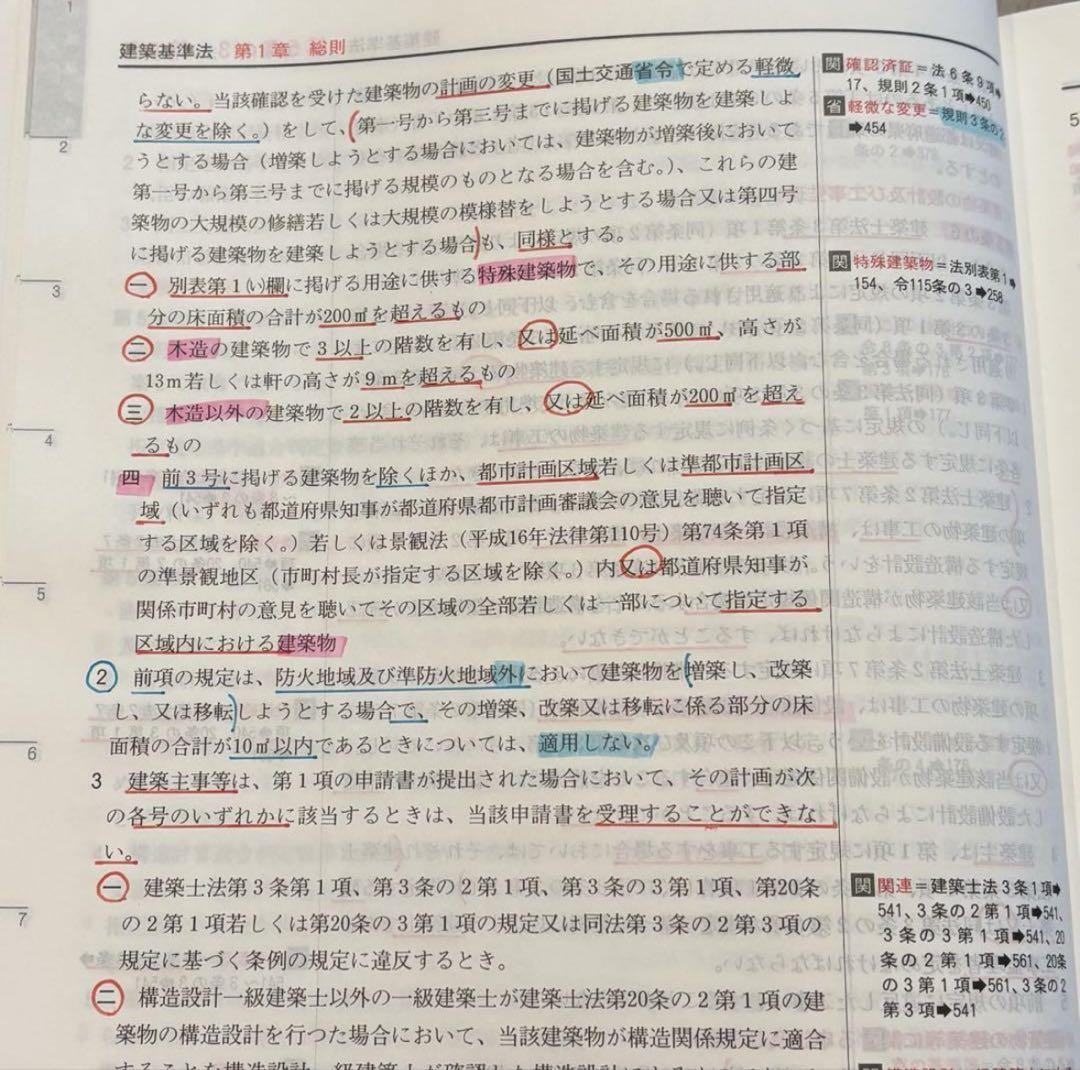 建築基準法 第1章 総則
らない。当該確認を受けた建築物の計画の変更(国土交通省令で定める軽微
な変更を除く。)をして、(第一号から第三号までに掲げる建築物を建築しよ
うとする場合(増築しようとする場合においては、建築物が増築後において
第一号から第三号までに掲げる規模のものとなる場合を含む。)、これらの建
築物の大規模の修繕若しくは大規模の模様替をしようとする場合又は第四号
に掲げる建築物を建築しようとする場合)も、同様とする。
一 別表第1㈠欄に掲げる用途に供する特殊建築物で、その用途に供する部
分の床面積の合計が200㎡を超えるもの
二 木造の建築物で3以上の階数を有し、又は延べ面積が500㎡、高さが
13m若しくは軒の高さが9mを超えるもの
三 木造以外の建築物で2以上の階数を有し、又は延べ面積が200㎡を超え
るもの
四 前3号に掲げる建築物を除くほか、都市計画区域若しくは準都市計画区
域(いずれも都道府県知事が都道府県都市計画審議会の意見を聴いて指定
する区域を除く。)若しくは景観法(平成16年法律第110号)第74条第1項
の準景観地区(市町村長が指定する区域を除く。)内又は都道府県知事が
関係市町村の意見を聴いてその区域の全部若しくは一部について指定する
区域内における建築物
2 前項の規定は、防火地域及び準防火地域外において建築物を(増築し、改築
し、又は移転)しようとする場合で、その増築、改築又は移転に係る部分の床
面積の合計が10㎡以内であるときについては、適用しない。
3 建築主事等は、第1項の申請書が提出された場合において、その計画が次
の各号のいずれかに該当するときは、当該申請書を受理することができな
い。
一 建築士法第3条第1項、第3条の2第1項、第3条の3第1項、第20条
の2第1項若しくは第20条の3第1項の規定又は同法第3条の2第3項の
規定に基づく条例の規定に違反するとき。
二 構造設計一級建築士以外の一級建築士が建築士法第20条の2第1項の建
築物の構造設計を行つた場合において、当該建築物が構造関係規定に適合
することを構造設計一級建築士が確認した構造設計によるものでないとき
関 確認済証=法6条9項➡
17、規則2条1項➡450
省 軽微な変更=規則3条の2
➡454
関 特殊建築物=法別表第1➡
154、令115条の3➡258
関 関連=建築士法3条1項➡
541、3条の2第1項➡541、
3条の3第1項➡541、20
条の2第1項➡561、20条
の3第1項➡561、3条の2
第3項➡541
1
2
3
4
5
6
7